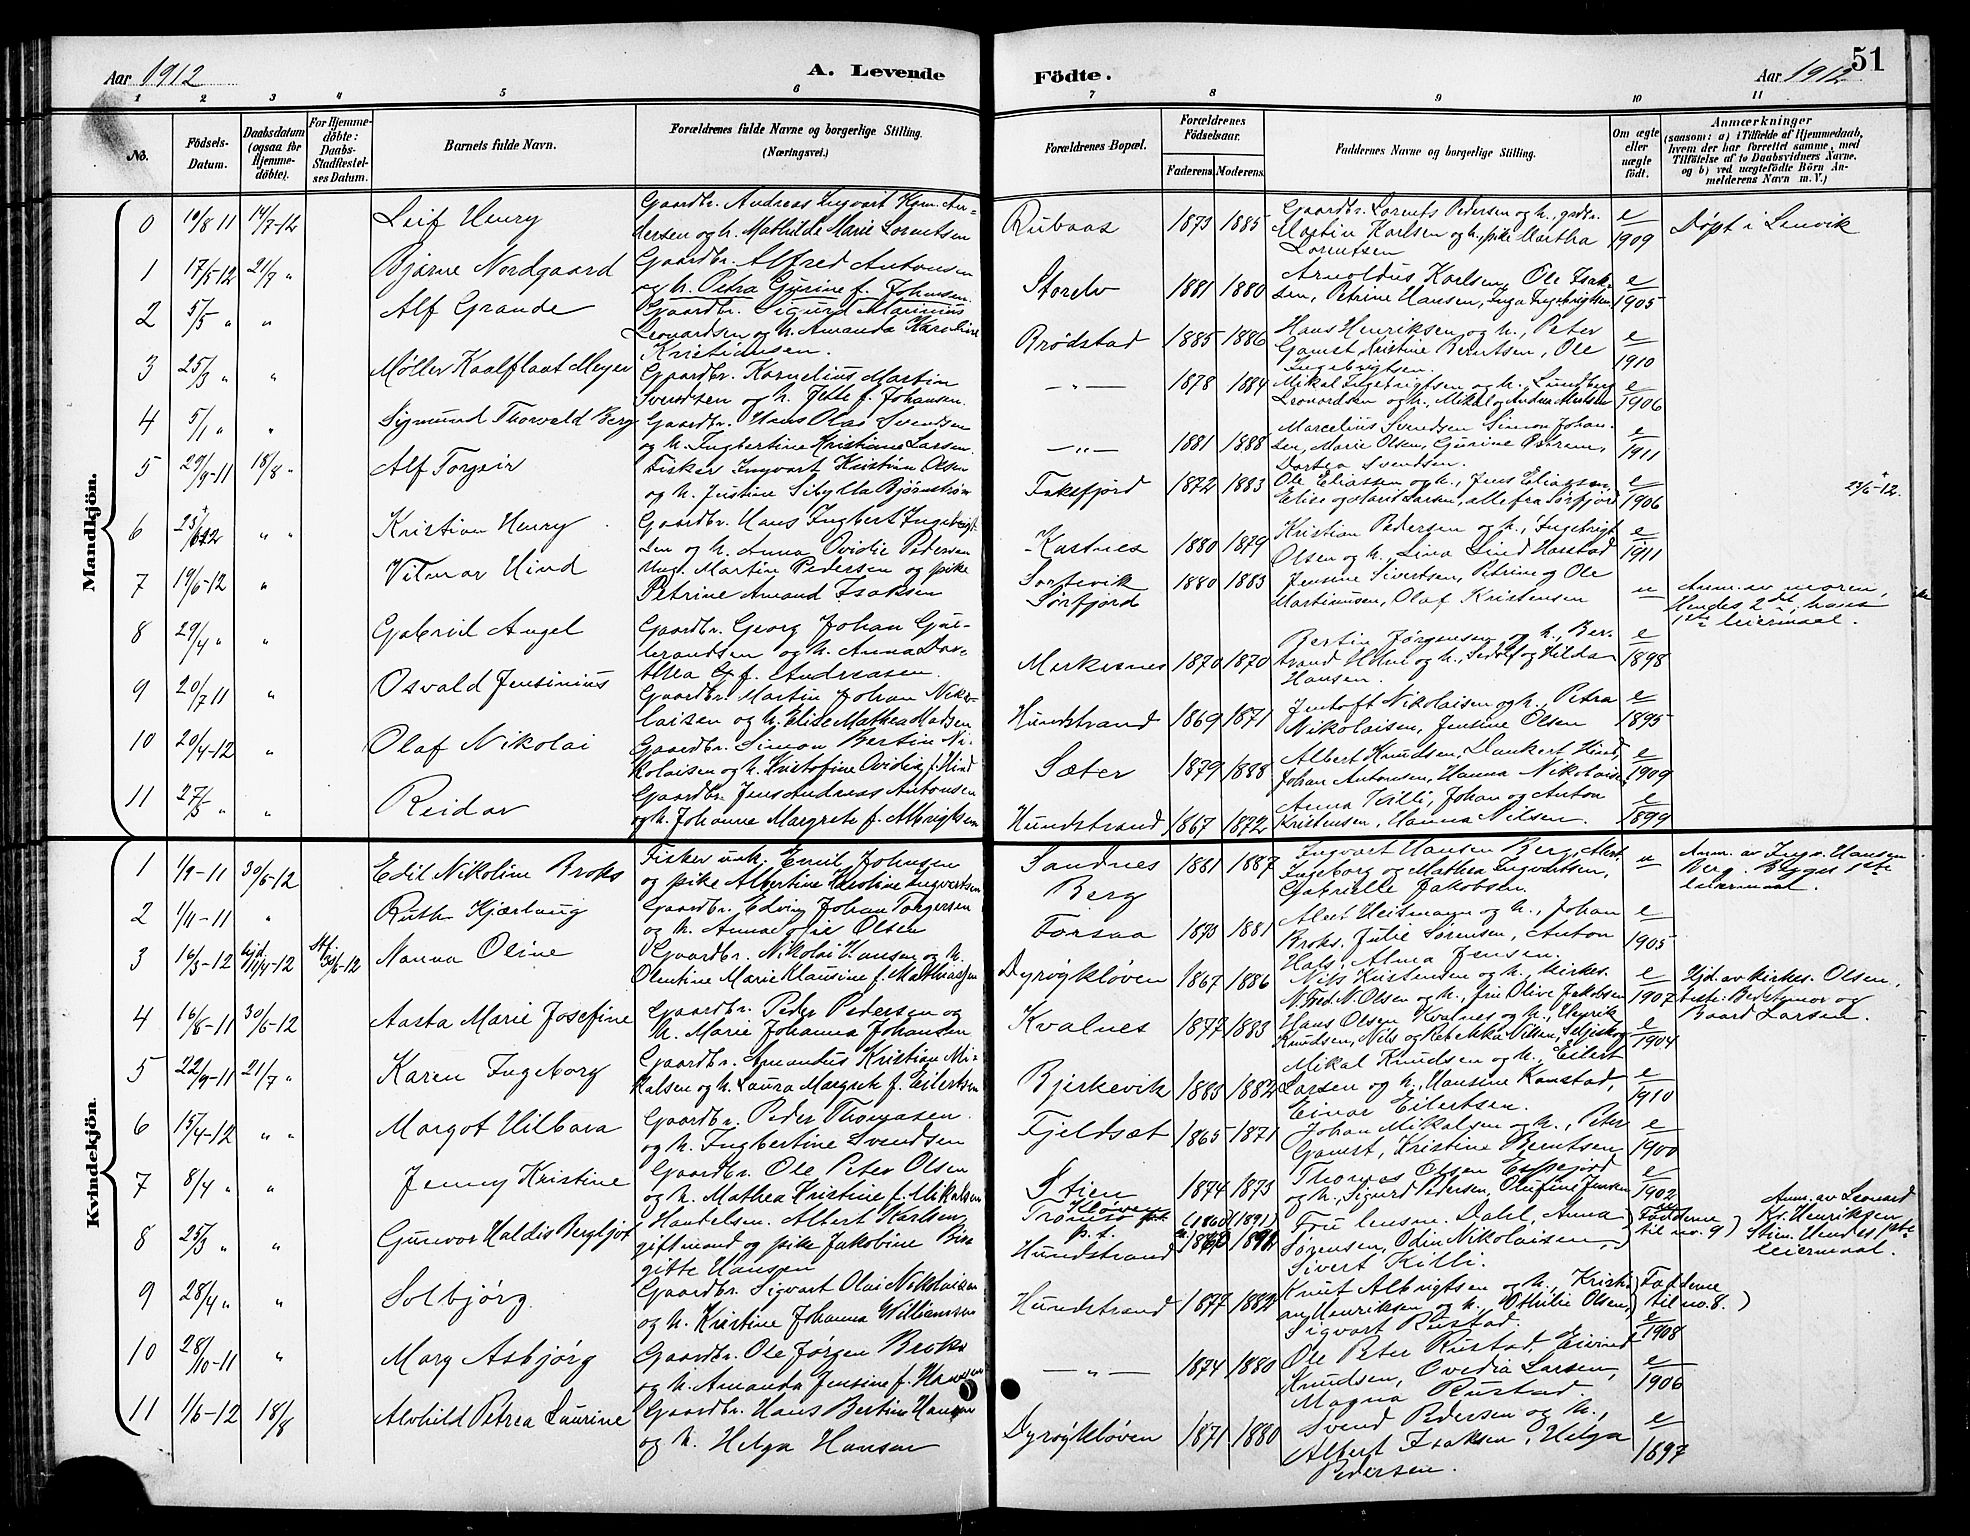 51
Aar 1912
A. Levende Fødte.
Aar 1912
1 2 3 4 5 6 7 8 9 10 11
No.
Födsels-Datum.
Daabsdatum (ogsaa for Hjemme-döbte).
For Hjemme-döbte: Daabs-Stadfestel-ses Datum.
Barnets fulde Navn.
Forældrenes fulde Navne og borgerlige Stilling. (Næringsvei.)
Forældrenes Bopæl.
Forældrenes Födselsaar.
Faderens. Moderens.
Faddernes Navne og borgerlige Stilling.
Om ægte eller uægte födt.
Anmærkninger
(saasom: a) i Tilfælde af Hjemmedaab, hvem der har forrettet samme, med Tilføielse af to Daabsvidners Navne, og b) ved uægtefödte Börn An-melderens Navn m. V.)
Mandkjön.
0 19/8 11 14/7-12 Leif Henry Gaardbr. Andreas Ingvart Kjøn. An-
dersen og h. Mathilde Marie Lorentsen Rubaas 1873 1885 Gaardbr. Lorents Pedersen og h., grdbr.
Martin Karlsen og h., pike Martha
Lorentsen e/1909 Døpt i Lenvik
1 17/5-12 21/7 " Bjarne Nordgaard Gaardbr. Alfred Antonsen
og h. Petra Gurine f. Johnsen. Storelv 1881 1880 Arnoldus Karlsen, Ole Isak-
sen, Petrine Hansen, Inga Ingebrigtsen e/1905
2 5/5 " " Alf Grande Gaardbr. Sigurd Marinius
Leonardsen og h. Amanda Karoline
Kristiansen. Brødstad 1885 1886 Hans Henriksen og h., Peter
Gamst, Kristine Berntsen, Ole
Ingebrigtsen. e/1910
3 25/3 " " Møller Kaalflaat Meyer Gaardbr. Kornelius Martin
Svendsen og h. Jette f. Johansen. — " — 1878 1884 Mikal Ingebrigtsen og h., Lundberg
Leonardsen og h., Mikal og Andrea e/1906
4 5/1 " " Sigmund Thorvald Berg Gaardbr. Hans Olai Svendsen
og h. Ingbertine Kristiane Larsen — " — 1881 1888 Marcelius Svendsen, Simon Johan-
sen, Marie Olsen, Gurine
Dortea Svendsen. e/1911
5 29/9-11 18/8 " Alf Torgeir Fisker Ingvart Kristian Olsen
og h. Justine Sibylla Bjørnstrøm Fakefjord 1872 1883 Ole Eliassen og h., Jens Eliassen,
Elise og Larsen, alle fra Sørfjord e/1906 23/6-12.
6 " " Kristian Henry Gaardbr. Hans Ingbert Ingebrigt-
sen og h. Anna Ovidie Pedersen Kastnes 1880 1879 Kristian Pedersen og h., Ingebrigt
Olsen og h., Lina Lind Harstad e/1911
7 19/6-12 " Vilmar Hind Ung. Martin Pedersen og pike
Petrine Amand Isaksen Sortevik
Sørfjord 1880 1883 Jensine Sivertsen, Petrine og Ole
Martinusen, Olaf Kristensen u Anm. av moren.
Hendes 2det, hans
1ste leiermaal.
8 29/4 " " Gabriel Angel Gaardbr. Georg Johan Gul-
brandsen og h. Anna Dor-
thea G. f. Andreasen. Markenes 1870 1870 Bertin Jørgensen og h., Ber-
trand Holm og h., og Hilda
Hansen. e/1898
9 20/7 11 " Osvald Jensinius Gaardbr. Martin Johan Niko-
laisen og h. Elise Mathea Madsen Hundstrand 1869 1871 Jentoft Nikolaisen og h., Petra
Nikolaisen, Jensine Olsen e/1895
10 20/4-12 " Olaf Nikolai Gaardbr. Simon Bertin Ni-
kolaisen og h. Kristofine Ovidia f. Hind Sæter 1879 1888 Albert Knudsen, Dankert Hind,
Johan Antonsen, Hanna Nikolaisen e/1909
11 27/3 " " Reidar Gaardbr. Jens Andreas Antonsen
og h. Johanne Margrete f. Albrigtsen Hundstrand 1867 1872 Anna Killi, Johan og Anton
Kristensen, Hanna Nilsen. e/1899
Kvindekjön.
1 1/9-11 30/6-12 Edil Nikoline Broks Fisker unk. Emil Johnsen
og pike Albertine Karoline Ingvartsen Sandnes
Berg 1881 1887 Ingvart Hansen Berg,
Ingeborg og Mathea Ingvartsen,
Gabrielle Jakobsen. u Anm. av Ingv. Hansen
Berg. Begges 1ste
leiermaal.
2 1/11-11 " Ruth Kjærlaug Gaardbr. Edvin Johan Torgersen
og h. Anna f. Olsen Forsaa 1873 1881 Albert Heitmann og h., Johan
Broks, Julie Sørensen, Anton
Hals, Alma Jensen. e/1905
3 16/3-12 hjd. 11/4-12 Stf. 30/6-12 Nanna Oline Gaardbr. Nikolai Hansen og h.
Olentine Marie Klausine f. Mathiassen Dyrøykløven 1867 1886 Nils Kristensen og h., kirkes.
N. Fred. N. Olsen og h., Olive Jakobsen e/1907 Hjd. av kirkes. Olsen,
teste: Bedstemor og
Baard Larsen.
4 16/8-11 30/6-12 Aasta Marie Josefine Gaardbr. Peder Pedersen og
h. Marie Johanna Johansen Kvalnes 1877 1883 Hans Olsen Kvalnes og h., Henrik
Knudsen, Nils og Rebekka Nilsen, Seljeskog e/1904
5 22/9-11 21/7 " Karen Ingeborg Gaardbr. Amandus Kristian Mi-
kalsen og h. Laura Margrete f. Eilertsen Bjerkevik 1883 1882 Mikal Knudsen og h., Eilert
Larsen og h., Hansine Kanstad,
Einar Eilertsen. e/1910
6 15/4-12 " " Margot Hilbara Gaardbr. Peder Thomasen.
og h. Ingbertine Svendsen Fjeldsæt 1865 1871 Johan Mikalsen og h., Peter
Gamst, Kristine Berntsen e/1900
7 8/4 " " Jenny Kristine Gaardbr. Ole Peter Olsen
og h. Mathea Kristine f. Mikalsen Stien
Kløven 1874 1873 Thomas Olsen Espejord
og h., Sigurd Pedersen, Olufine Jensen e/1902
8 25/3 " " Gunvor Haldis Bergljot Handelsm. Albert Karlsen,
gift mand og pike Jakobine Bir-
gitte Hansen Tromsø
p. t.
Hundstrand (1860 (1891) Fru lensm. Dahl, Anna
Sørensen, Odin Nikolaisen,
Sivert Killi. Fadderne
til no. 9) Anm. av Leonard
Kr. Henriksen
Stien. Hendes 1ste
leiermaal.
9 28/4 " " Solbjørg Gaardbr. Sigvart Olai Nikolaisen
og h. Kristine Johanna Williamsen Hundstrand 1877 1882 Knut Albrigtsen og h., Kristi-
an Henriksen og h., Othilie Olsen,
Sigvart Rustad. Fadderne
til no. 8.) e/1908
10 28/10-11 " Mary Asbjørg Gaardbr. Ole Jørgen Broks
og h. Amanda Jensine f. Hansen — " — 1874 1880 Ole Peter Rustad, Eivind
Knudsen, Ovedia Larsen,
Magna Rustad. e/1906
11 1/6-12 18/8 Alvhild Petrea Laurine Gaardbr. Hans Bertin Hansen
og h. Helga Hansen Dyrøykløven 1871 1880 Svend Pedersen og h.,
Albert Isaksen, Helga
Pedersen. e/1897